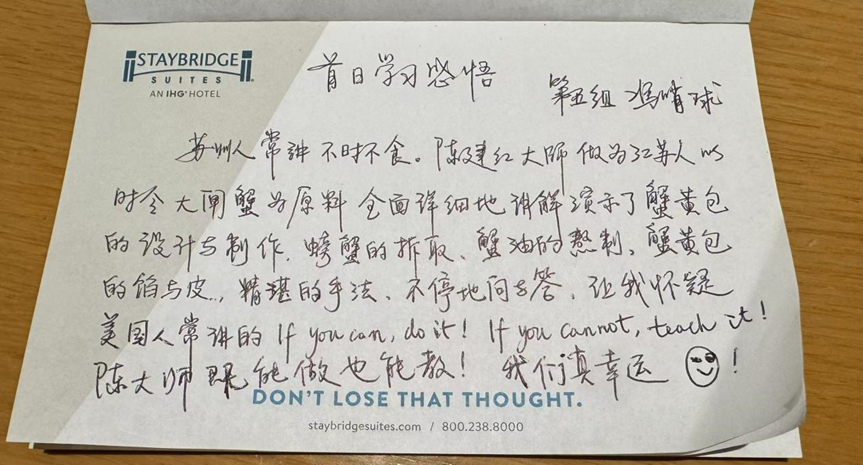 STAYBRIDGE
SUITES
AN IHG® HOTEL
首日学习感悟
第五组 冯啃球
苏州人常讲不时不食。陈建红大师做为江苏人以
时令大闸蟹为原料全面详细地讲解演示了蟹黄包
的设计与制作、螃蟹的拆取、蟹油的熬制、蟹黄包
的馅与皮…,精湛的手法、不停地问与答、让我怀疑
美国人常讲的 If you can, do it! If you cannot, teach it!
陈大师既能做也能教! 我们真幸运 !
DON'T LOSE THAT THOUGHT.
staybridgesuites.com / 800.238.8000